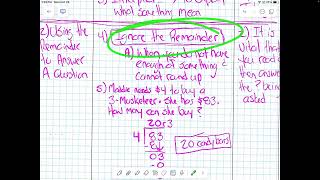 what something mean
2) Using the
Remainder
to Answer
A Question
4) Ignore the Remainder
A) When you do not have
enough of something
cannot round up
5) Maddie needs $4 to buy a
3-Musketeer. She has $83.
How many can she buy?
20r3
4 83
-8
03
-0
20 candy bars
2) It is
vital that
you read
then answer
the ? being
asked